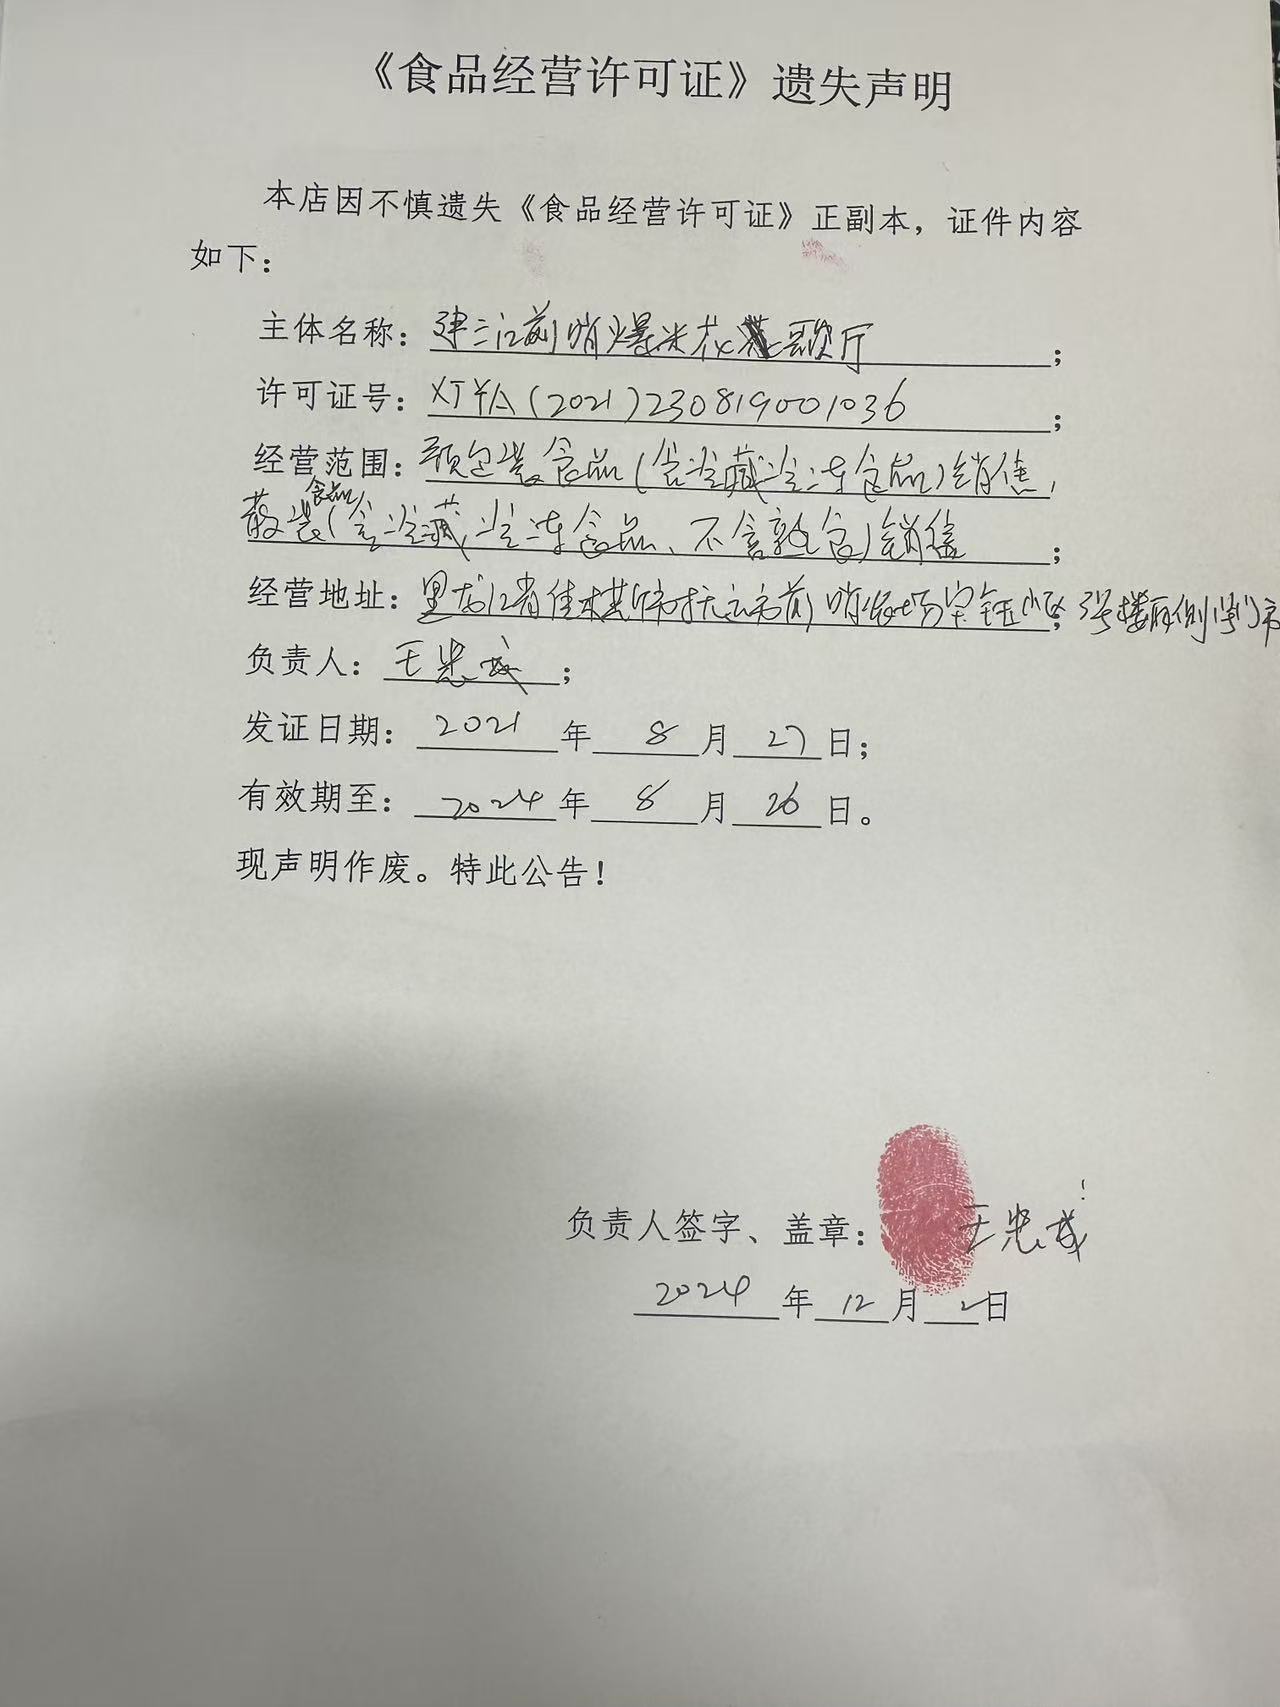 《食品经营许可证》遗失声明
本店因不慎遗失《食品经营许可证》正副本，证件内容
如下：
主体名称：建三江前哨爆米花歌厅；
许可证号：XJYA(2021)230819001036；
经营范围：预包装食品(含冷藏冷冻食品)销售，
散装食品(含冷藏冷冻食品、不含熟食)销售；
经营地址：黑龙江省佳木斯市抚远市前哨农场宝钰小区；3号楼西侧门市
负责人：王忠成；
发证日期：2021年8月27日；
有效期至：2024年8月26日。
现声明作废。特此公告！
负责人签字、盖章：王忠成
2024年12月2日